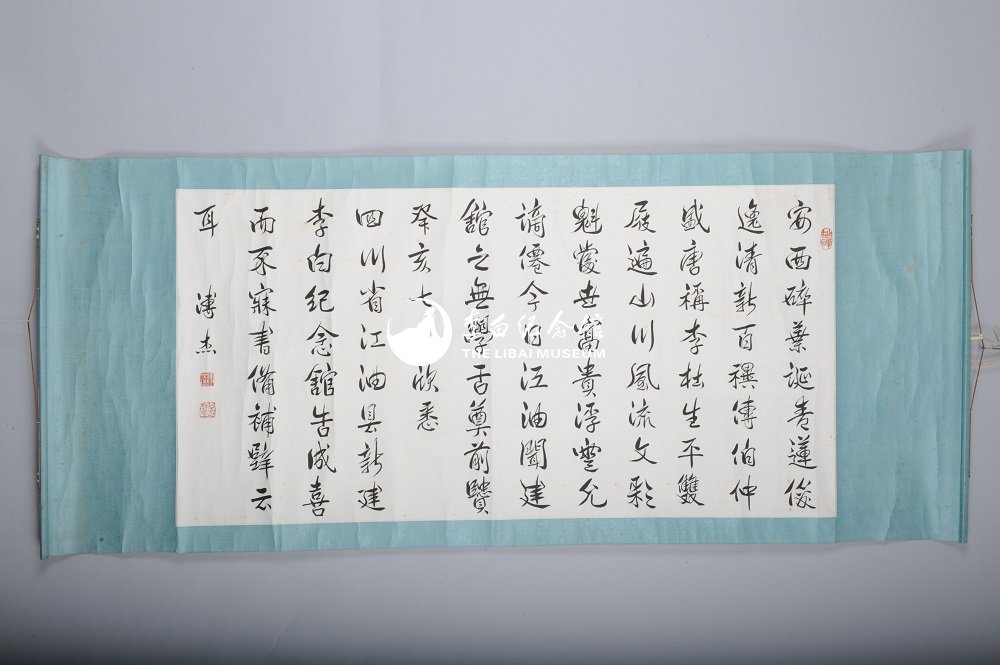 安西碎葉誕青蓮俊
逸清新百禩傳伯仲
盛唐稱李杜生平雙
屐遍山川風流文彩
魁當世富貴浮雲允
謫僊今日江油聞建
舘之無學舌奠前賢
癸亥七 欣悉
四川省江油县新建
李白纪念舘告成喜
而不寐書備補壁云
耳 溥杰
李白纪念馆
THE LIBAI MUSEUM